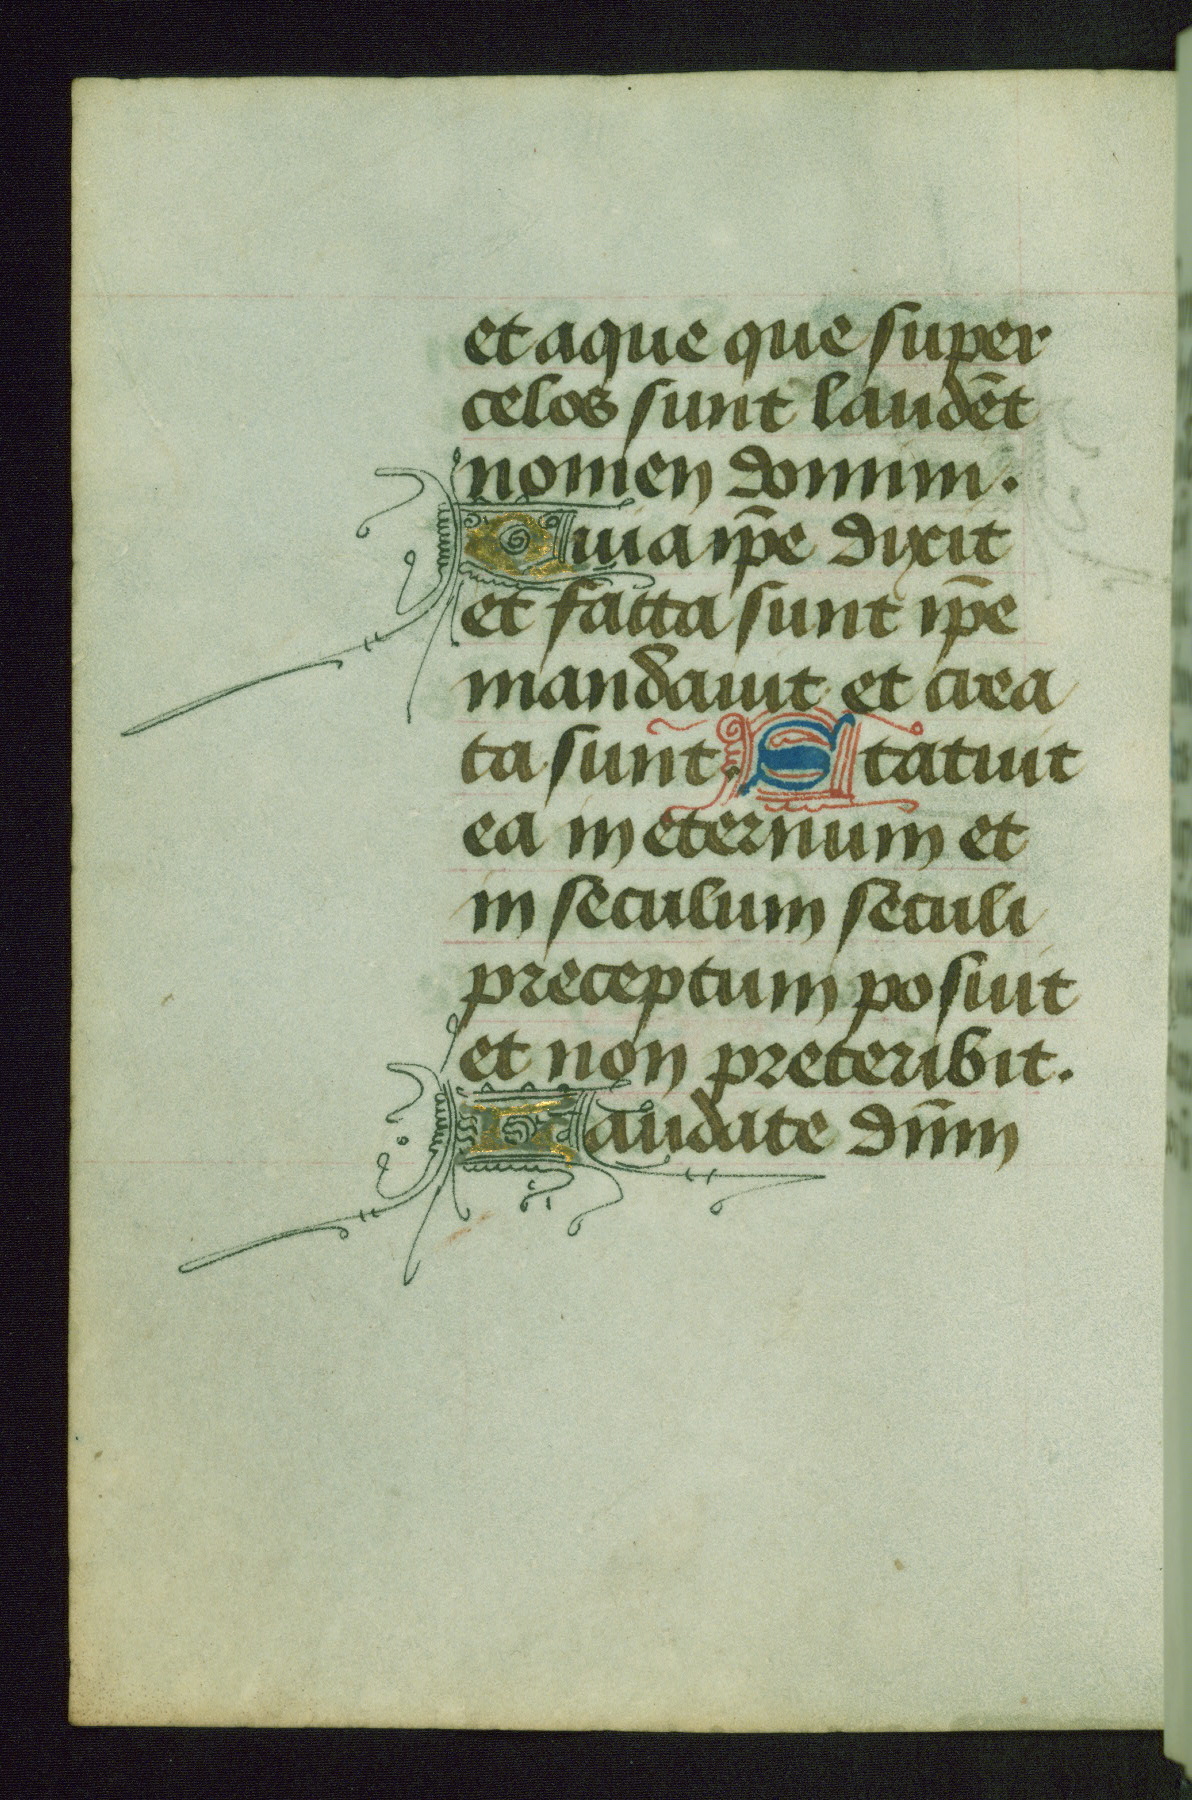 et aque que super
celos sunt laudēt
nomen domini.
Quia ip̄e dixit
et facta sunt ip̄e
mandavit et crea
ta sunt. Statuit
ea in eternum et
in seculum seculi
preceptum posuit
et non preteribit.
Laudate dn̄m